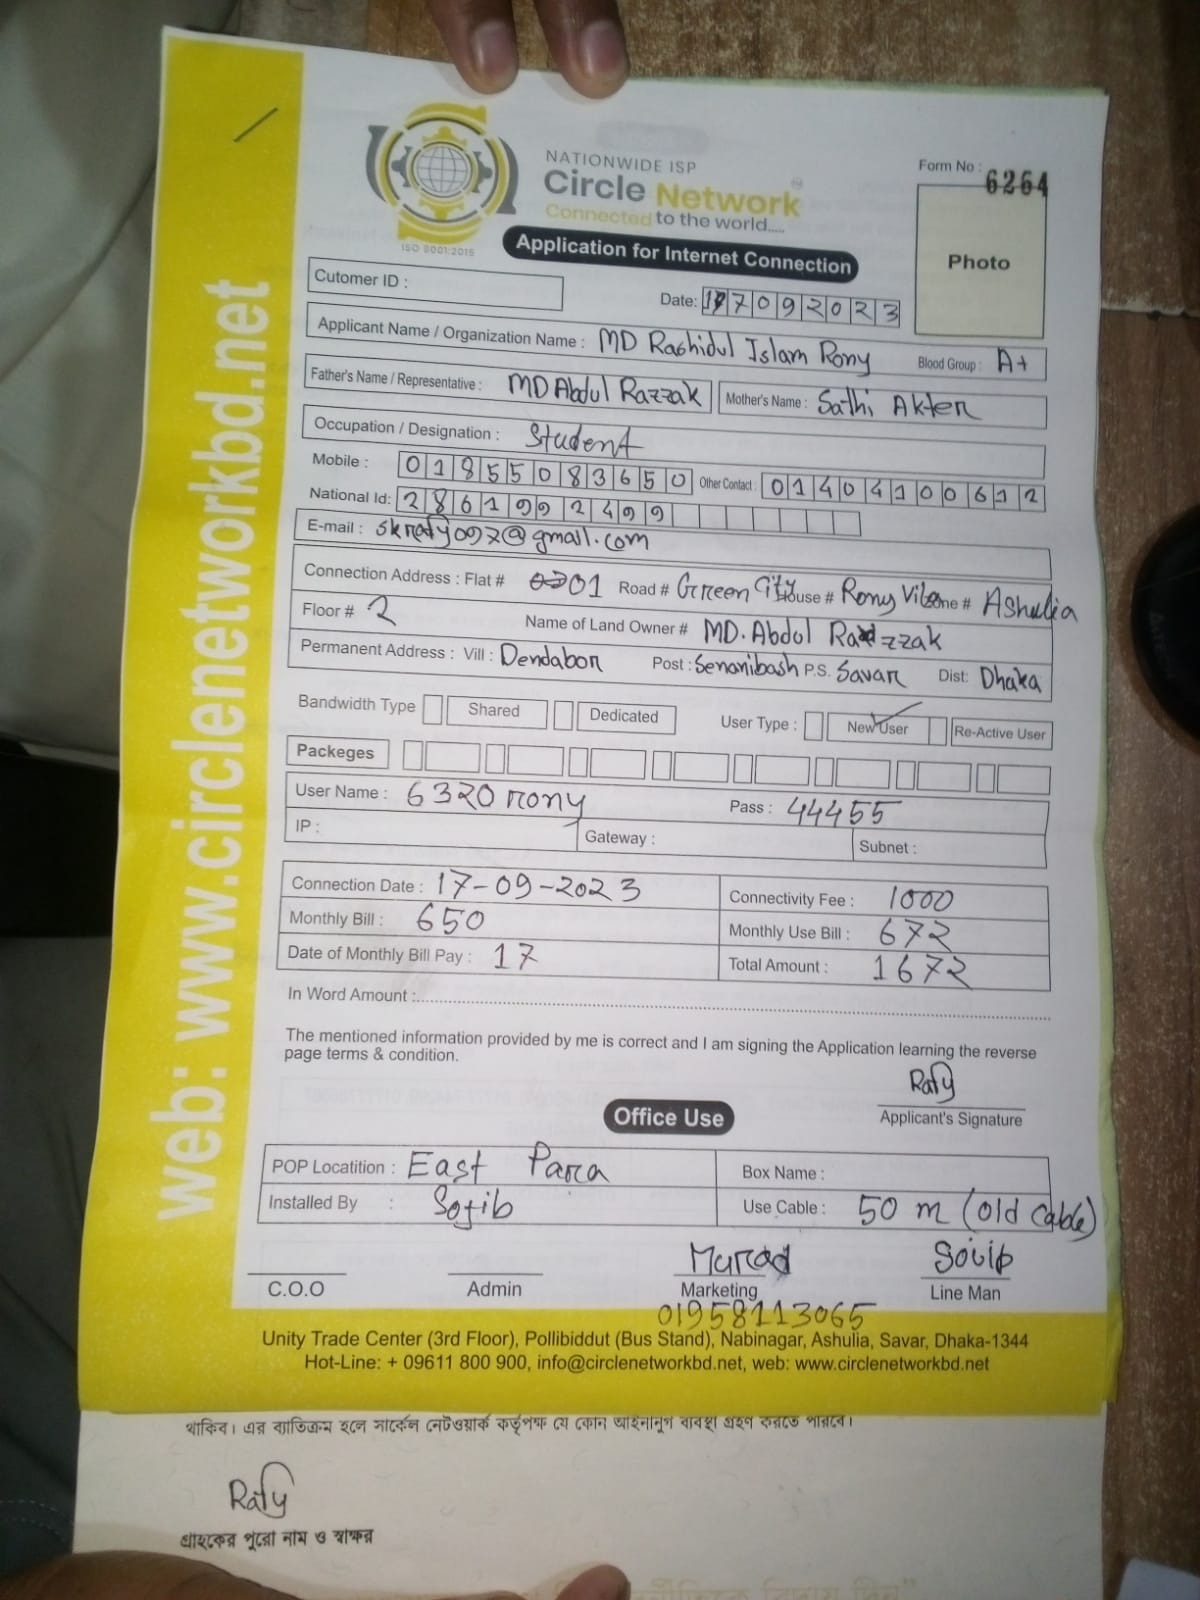 NATIONWIDE ISP
Circle Network
Connected to the world.....
ISO 9001:2015
Form No : 6264
Application for Internet Connection
Photo
Cutomer ID :
Date: 17092023
Applicant Name / Organization Name : MD Rashidul Islam Rony Blood Group : A+
Father's Name / Representative : MD Abdul Razzak Mother's Name : Sathi Akter
Occupation / Designation : Student
Mobile : 01855083650 Other Contact : 01404100612
National Id: 2861992499
E-mail : skrafy097@gmail.com
Connection Address : Flat # 01 Road # Green City House # Rony Villa Zone # Ashulia
Floor # 2 Name of Land Owner # MD. Abdul Razzak
Permanent Address : Vill : Dendabor Post : Senanibash P.S. Savar Dist: Dhaka
Bandwidth Type Shared Dedicated User Type : New User Re-Active User
Packeges
User Name : 6320rony Pass : 44455
IP : Gateway : Subnet :
Connection Date : 17-09-2023 Connectivity Fee : 1000
Monthly Bill : 650 Monthly Use Bill : 672
Date of Monthly Bill Pay : 17 Total Amount : 1672
In Word Amount :
The mentioned information provided by me is correct and I am signing the Application learning the reverse
page terms & condition.
Rafy
Applicant's Signature
Office Use
POP Locatition : East Para Box Name :
Installed By : Sojib Use Cable : 50 m (old cable)
Murad Sojib
C.O.O Admin Marketing Line Man
01958113065
Unity Trade Center (3rd Floor), Pollibiddut (Bus Stand), Nabinagar, Ashulia, Savar, Dhaka-1344
Hot-Line: + 09611 800 900, info@circlenetworkbd.net, web: www.circlenetworkbd.net
web: www.circlenetworkbd.net
থাকিব। এর ব্যতিক্রম হলে সার্কেল নেটওয়ার্ক কর্তৃপক্ষ যে কোন আইনানুগ ব্যবস্থা গ্রহণ করতে পারবে।
Rafy
গ্রাহকের পুরো নাম ও স্বাক্ষর